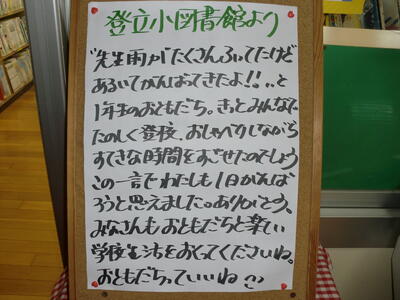 登立小図書館より
"先生雨がたくさんふってたけど
あるいてがんばってきたよ!!"と
1年生のおともだち。きっとみんなで
たのしく登校、おしゃべりしながら
すてきな時間をすごせたのでしょう
この一言でわたしも1日がんば
ろうと思えました。ありがとう。
みなさんもおともだちと楽しい
学校生活をおくってくださいね。
おともだちっていいね